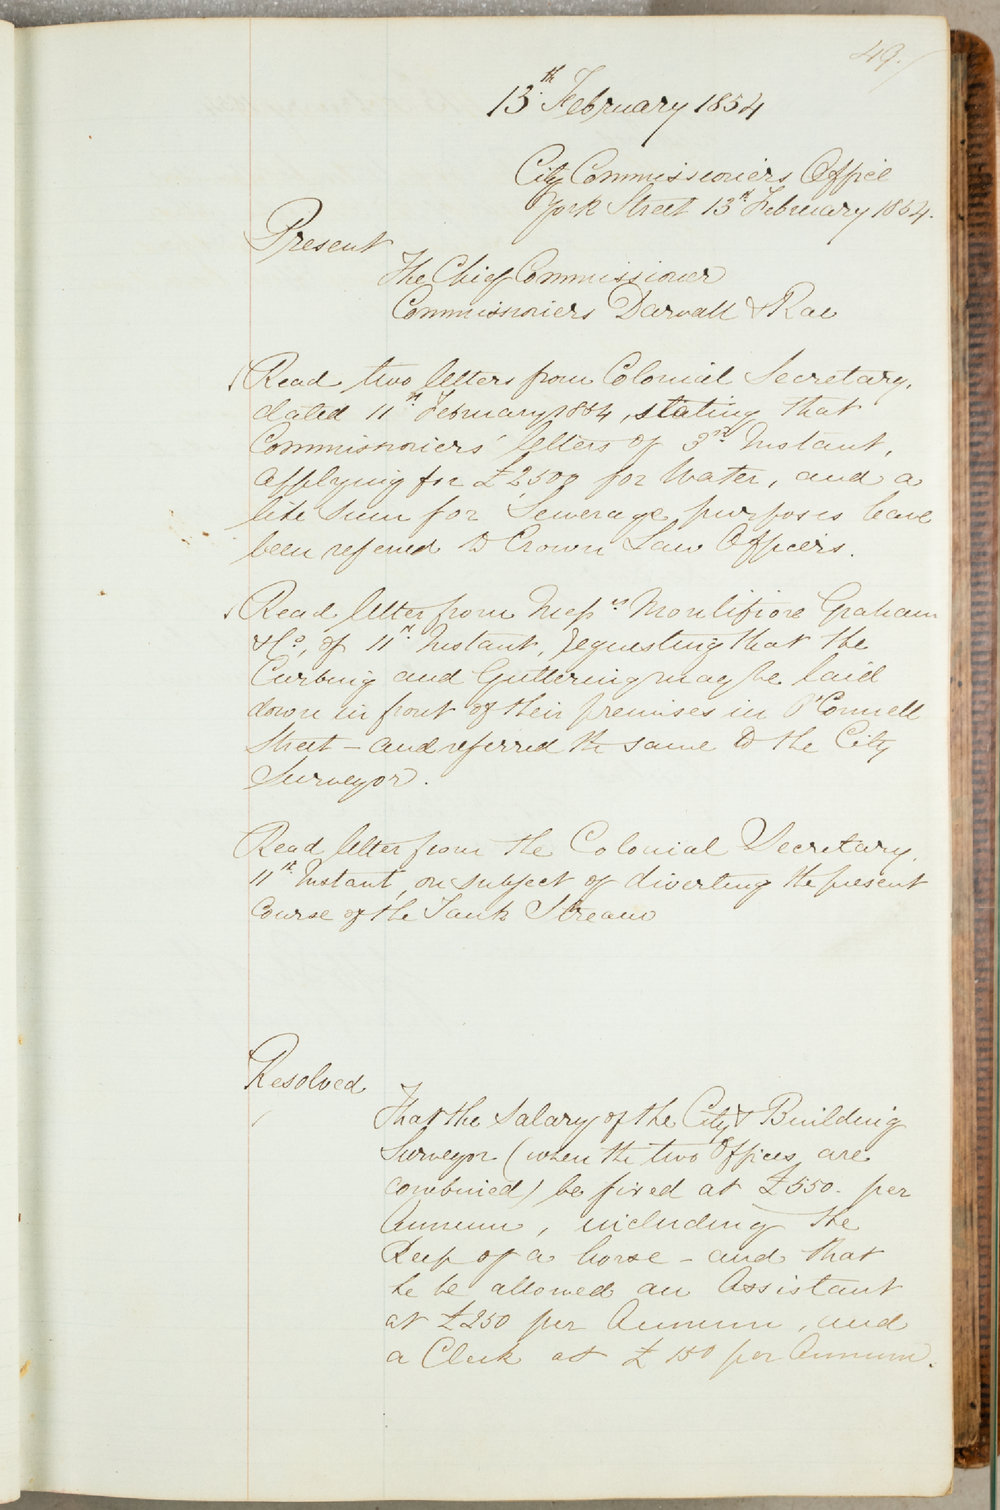 49.
13th February 1854
City Commissioners Office
York Street 13th February 1854.
Present
The Chief Commissioner
Commissioners Darvall & Rae
Read two letters from Colonial Secretary,
dated 11th February 1854, stating that
Commissioners' letters of 3rd Instant,
applying for £2,500 for Water, and a
like sum for Sewerage purposes have
been referred to Crown Law Officers.
Read letter from Messrs Montifiore Graham
& Co, of 11th Instant, requesting that the
Curbing and Guttering may be laid
down in front of their premises in O'Connell
Street - and referred the same to the City
Surveyor.
Read letter from the Colonial Secretary,
11th Instant, on subject of diverting the present
course of the Tank Stream
Resolved
That the Salary of the City & Building
Surveyor (when the two Offices are
combined) be fixed at £550. per
Annum, including the
Keep of a horse - and that
he be allowed an Assistant
at £250 per Annum, and
a Clerk at £150 per Annum.